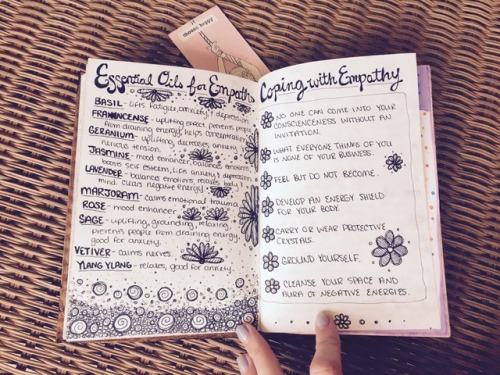 choose happy
Essential Oils for Empaths
BASIL - LIFTS fatigue, anxiety + depression
FRANKINCENSE - uplifting effect prevents people
from draining energy, helps concentration
GERANIUM - uplifting, decreases anxiety
nervous tension.
JASMINE - mood enhancer, balances emotions
boosts self esteem, lifts anxiety + depression
LAVENDER - balance emotions, relaxes body +
mind. clears negative energy
MARJORAM - calms emotional trauma
ROSE - mood enhancer
SAGE - uplifting, grounding, relaxing,
prevents people from draining energy.
good for anxiety.
VETIVER - calms nerves
YLANG YLANG - relaxes, good for anxiety.
Coping with Empathy
NO ONE CAN COME INTO YOUR
CONSCIENCENESS WITHOUT AN
INVITATION.
WHAT EVERYONE THINKS OF YOU
IS NONE OF YOUR BUSINESS.
FEEL BUT DO NOT BECOME.
DEVELOP AN ENERGY SHIELD
FOR YOUR BODY.
CARRY OR WEAR PROTECTIVE
CRYSTALS.
GROUND YOURSELF.
CLEANSE YOUR SPACE AND
AURA OF NEGATIVE ENERGIES.